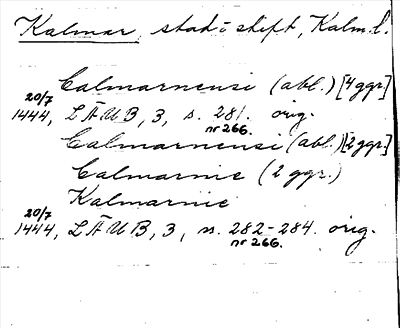 Kalmar, stad i skift, Kalm. l.
Calmarnensi (abl.) [4 ggr.]
20/7
1444, LÄUB, 3, s. 281. orig.
nr 266.
Calmarnensi (abl.) [2 ggr.]
Calmarnie (2 ggr.)
Kalmarnie
20/7
1444, LÄUB, 3, s. 282-284. orig.
nr 266.